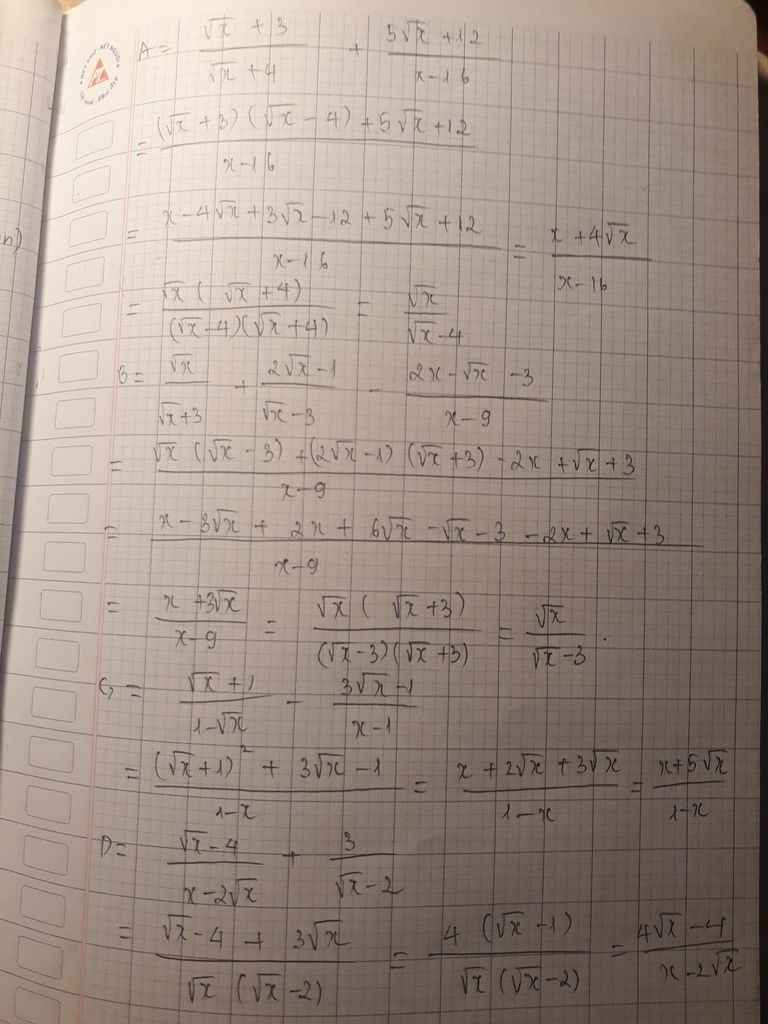 A = (√x + 3)/(√x + 4) + (5√x + 12)/(x - 16)
= ((√x + 3)(√x - 4) + 5√x + 12)/(x - 16)
= (x - 4√x + 3√x - 12 + 5√x + 12)/(x - 16) = (x + 4√x)/(x - 16)
= (√x(√x + 4))/((√x - 4)(√x + 4)) = √x/(√x - 4)
B = √x/(√x + 3) + (2√x - 1)/(√x - 3) - (2x - √x - 3)/(x - 9)
= (√x(√x - 3) + (2√x - 1)(√x + 3) - 2x + √x + 3)/(x - 9)
= (x - 3√x + 2x + 6√x - √x - 3 - 2x + √x + 3)/(x - 9)
= (x + 3√x)/(x - 9) = (√x(√x + 3))/((√x - 3)(√x + 3)) = √x/(√x - 3).
= (√x + 1)/(1 - √x) - (3√x - 1)/(x - 1)
= ((√x + 1)² + 3√x - 1)/(1 - x) = (x + 2√x + 3√x)/(1 - x) = (x + 5√x)/(1 - x)
D = (√x - 4)/(x - 2√x) + 3/(√x - 2)
= (√x - 4 + 3√x)/(√x(√x - 2)) = (4(√x - 1))/(√x(√x - 2)) = (4√x - 4)/(x - 2√x)